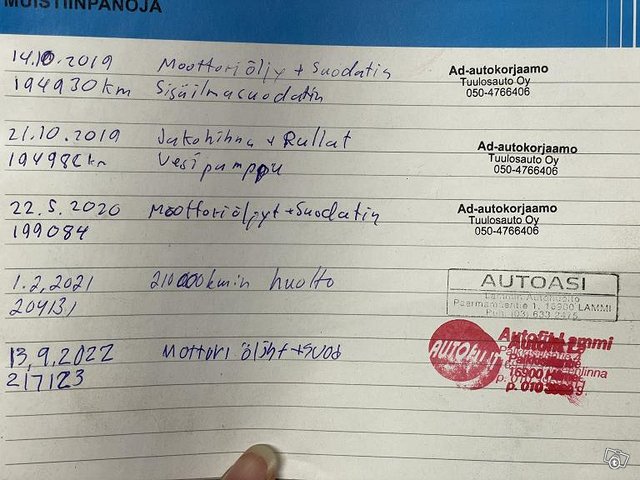 MUISTIINPANOJA
14.10.2019 Moottoriöljy + Suodatin
194930 km Sisäilmasuodatin
Ad-autokorjaamo
Tuulosauto Oy
050-4766406
21.10.2019 Jakohihna + Rullat
194982 km Vesipumppu
Ad-autokorjaamo
Tuulosauto Oy
050-4766406
22.5.2020 Moottoriöljyt + Suodatin
199084
Ad-autokorjaamo
Tuulosauto Oy
050-4766406
1.2.2021 210000kmin huolto
204131
AUTOASI
Lammin
1, 16900 LAMMI
Puh.
13.9.2022 Mottori öljyt + Suod
217123
AUTOFIT
Autofit Lammi
16900
p. 010